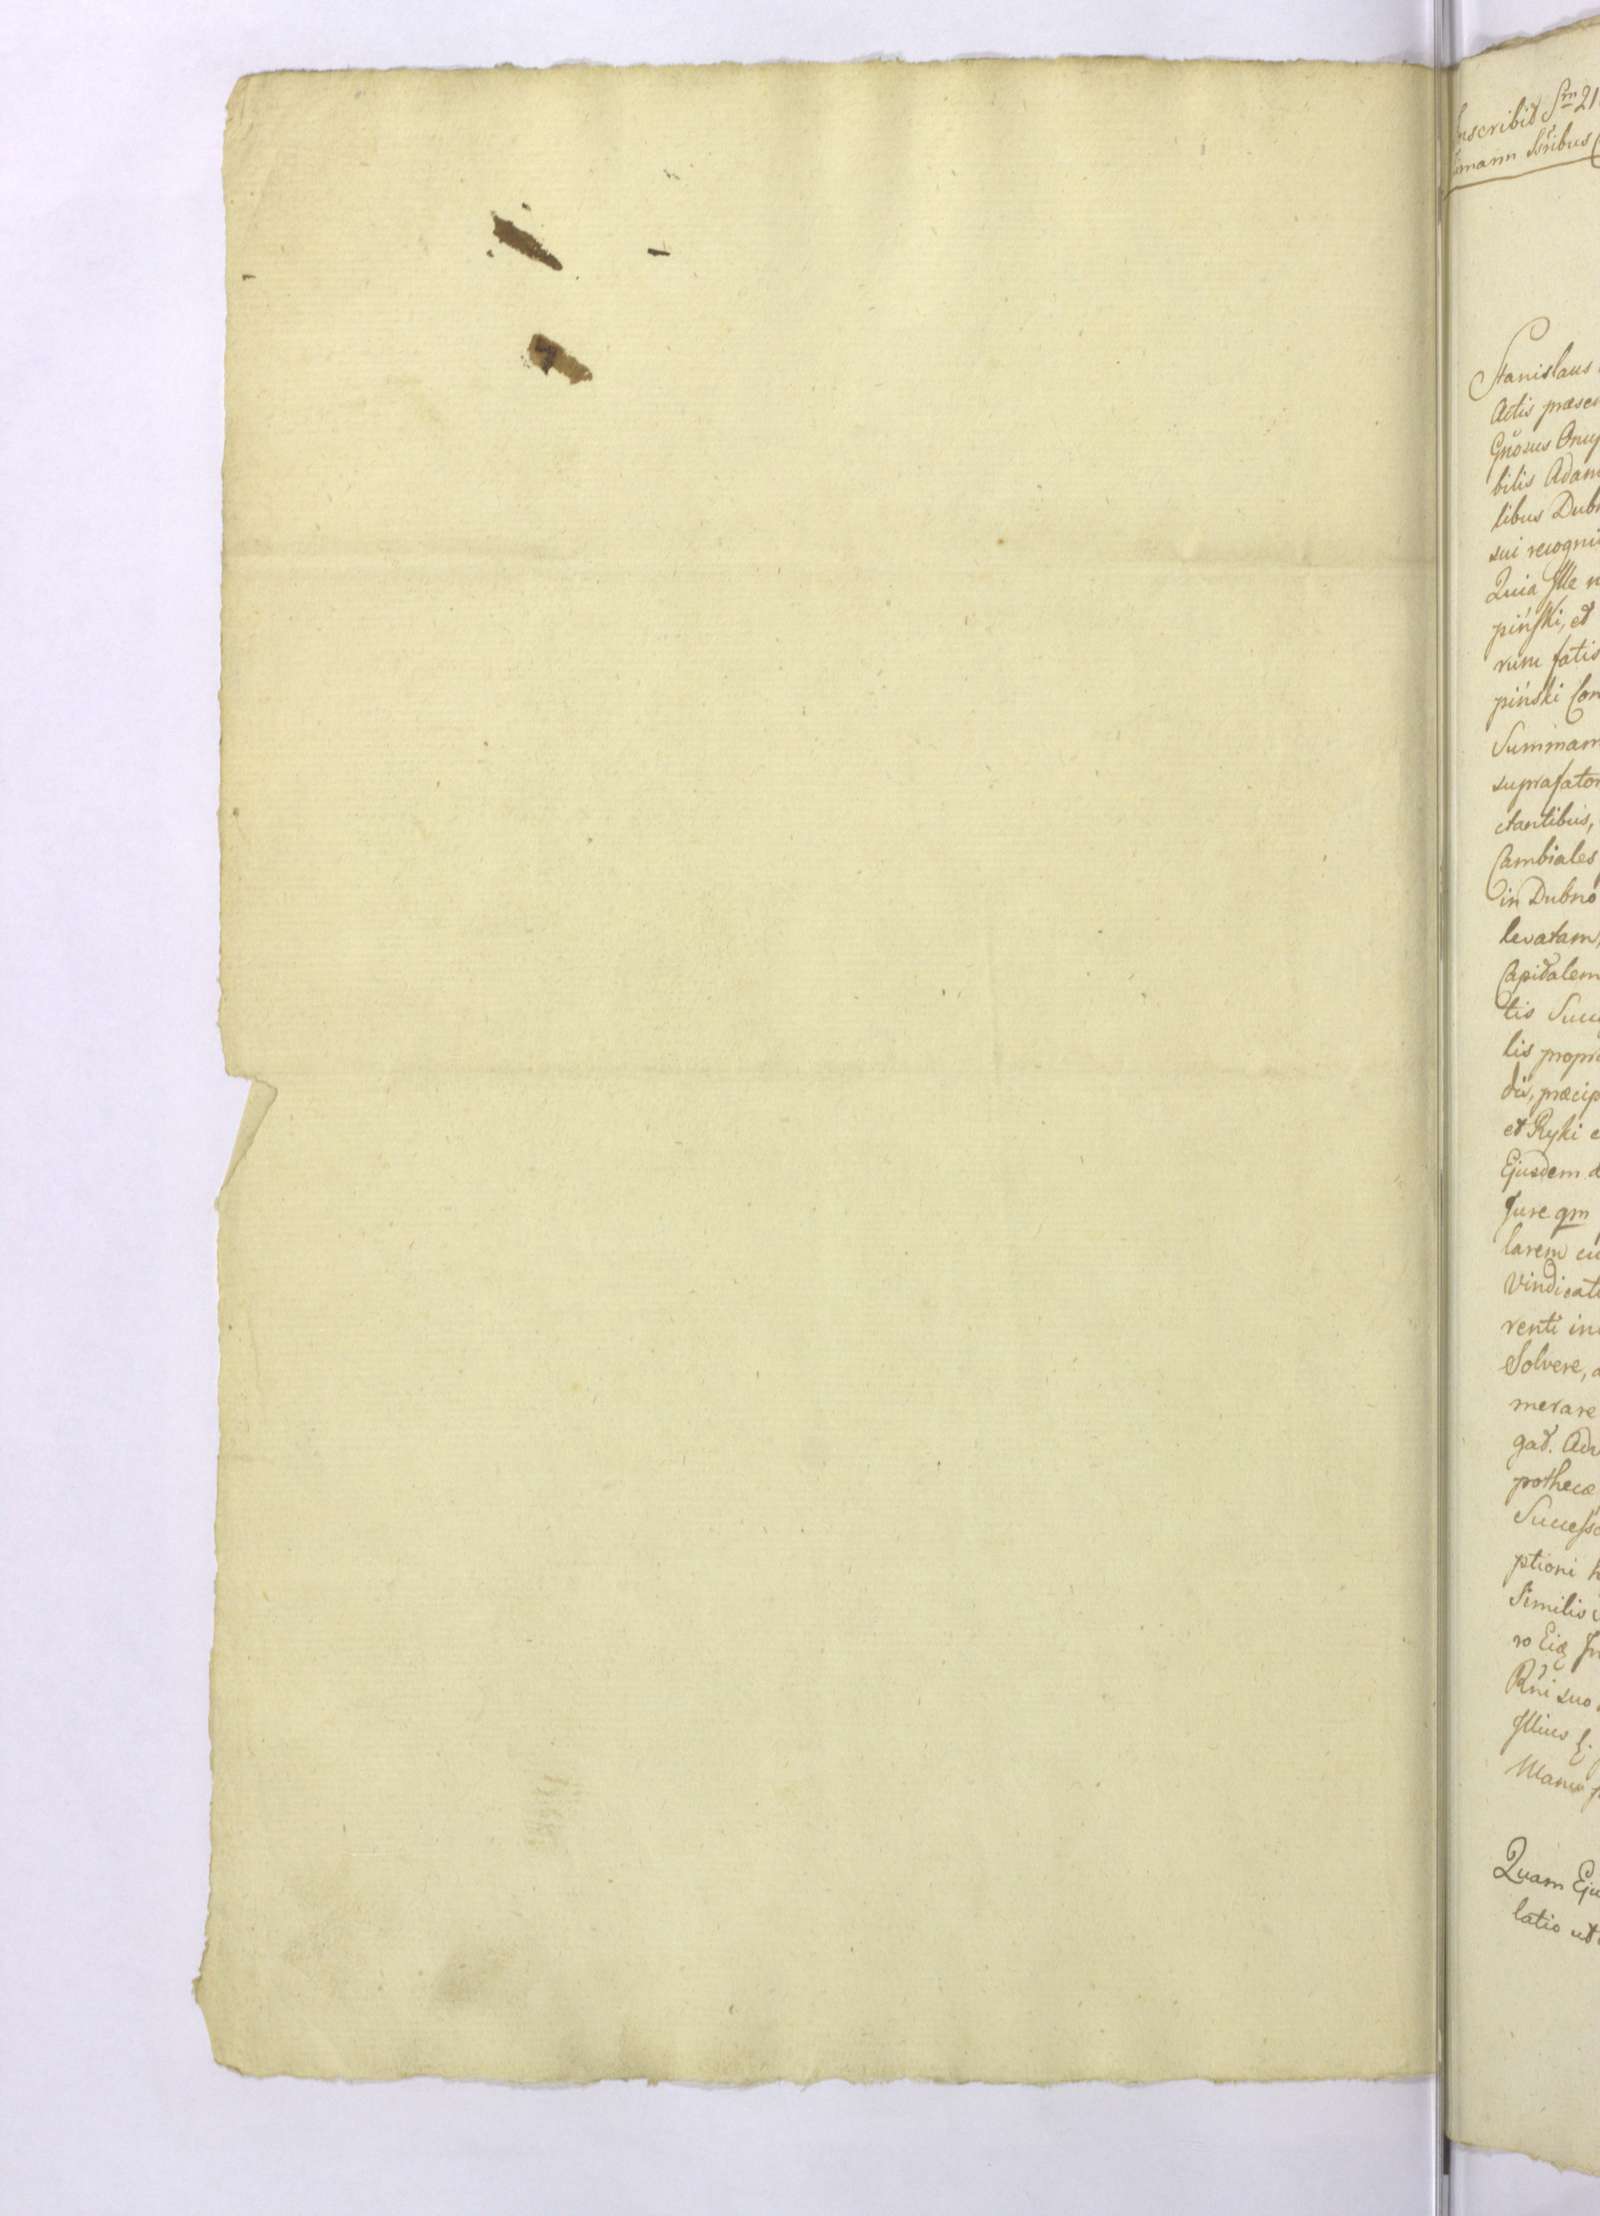 Inscribit Sm̄ 21
mann Sŕibus
Stanislaus
Actis præsen
Gñosus Onu
bilis Adam
libus Dub
sui recogni
Quia Ille n
piński, et
rum satis
piński Con
Summam
suprafator
ctantibus,
Cambiales
in Dubno
levatam,
Capitalem
tis Succ
lis propr
dii, præcip
et Ryki e
Ejusdem d
Jure qm
larem cu
Vindicati
renti in
Solvere, a
merare
gat. Adv
pothecæ
Successo
ptioni h
Similis
ro Eiq In
Rñi suo
Illius
Manu p
Quam Eju
latio ut